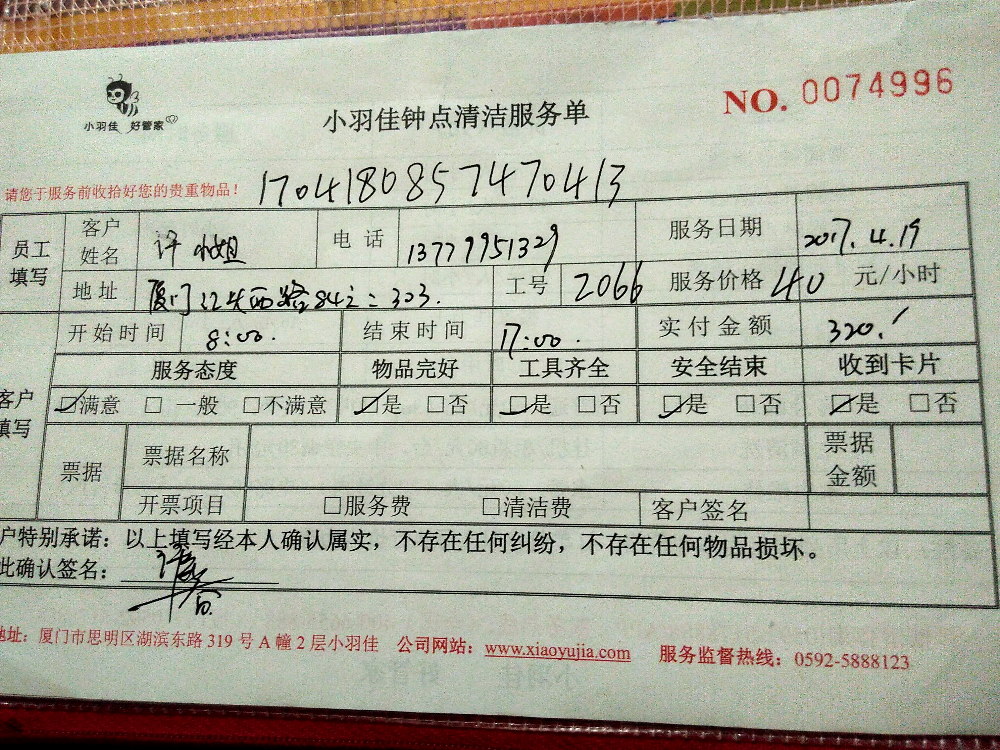 小羽佳 好管家
小羽佳钟点清洁服务单
NO. 0074996
请您于服务前收拾好您的贵重物品！ 1704180857470413
员工填写 客户姓名 许小姐 电话 13779951329 服务日期 2017.4.19
地址 厦门 西路84之二303. 工号 2066 服务价格 40 元/小时
开始时间 8:00. 结束时间 17:00. 实付金额 320.
客户填写 服务态度 物品完好 工具齐全 安全结束 收到卡片
☑满意 □一般 □不满意 ☑是 □否 ☑是 □否 ☑是 □否 ☑是 □否
票据 票据名称 票据金额
开票项目 □服务费 □清洁费 客户签名
户特别承诺：以上填写经本人确认属实，不存在任何纠纷，不存在任何物品损坏。
此确认签名：
地址：厦门市思明区湖滨东路 319 号 A 幢 2 层小羽佳 公司网站：www.xiaoyujia.com 服务监督热线：0592-5888123